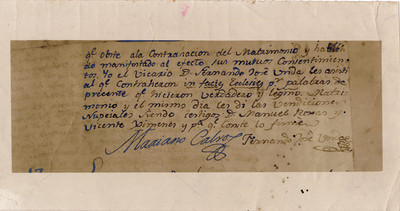 qᵉ obste ala Contranacion del Matrimonio y habien
do manifestado al efecto sus mutuos Consentimien
tos Yo el Vicario D. Fernando José Unda les asisti
al qᵉ Contraheron in facie Eclecies pʳ palabras de
precente qᵉ hicieron verdadero y legmo. Matri
monio y el mismo dia les di las Vendiciones
Nupciales siendo testigos D. Manuel Rosas y
Vicente Ximenes y pᵃ qᵉ conste lo firmé
Mariano Calvo Fernando José Unda